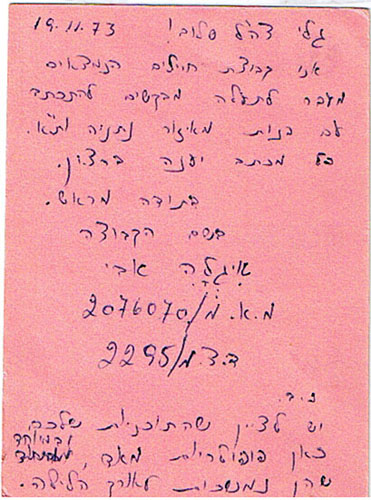 19.11.73
גלי צה"ל שלום!
אנו קבוצת חיילים הנמצאים
מעבר לתעלה מבקשים להתכתב
עם בנות מאיזור נתניה ות"א.
כל מכתב יענה ברצון.
בתודה מראש.
בשם הקבוצה
אבי
מ.א. מ/2076070
ד.צ. מ/2295
נ.ב.
יש לציין שהתוכניות שלכם
כאן פופולריות מאד, ובמיוחד
שהן נמשכות לאורך הלילה.